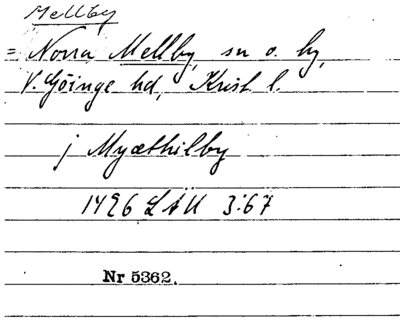 Mellby
= Norra Mellby, sn o. by,
V. Göinge hd, Krist l.
j Myæthilby
1426 LÄU 3:67
Nr 5362.